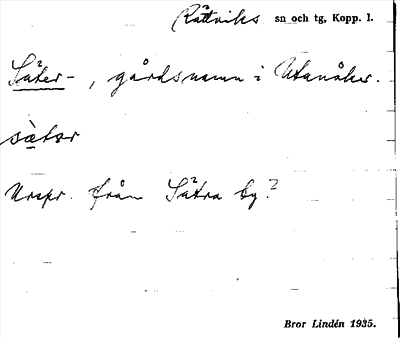 Rättviks sn och tg, Kopp. l.
Säter-, gårdsnamn i Utanåker.
sàter
Urspr. från Sätra by?
Bror Lindén 1935.